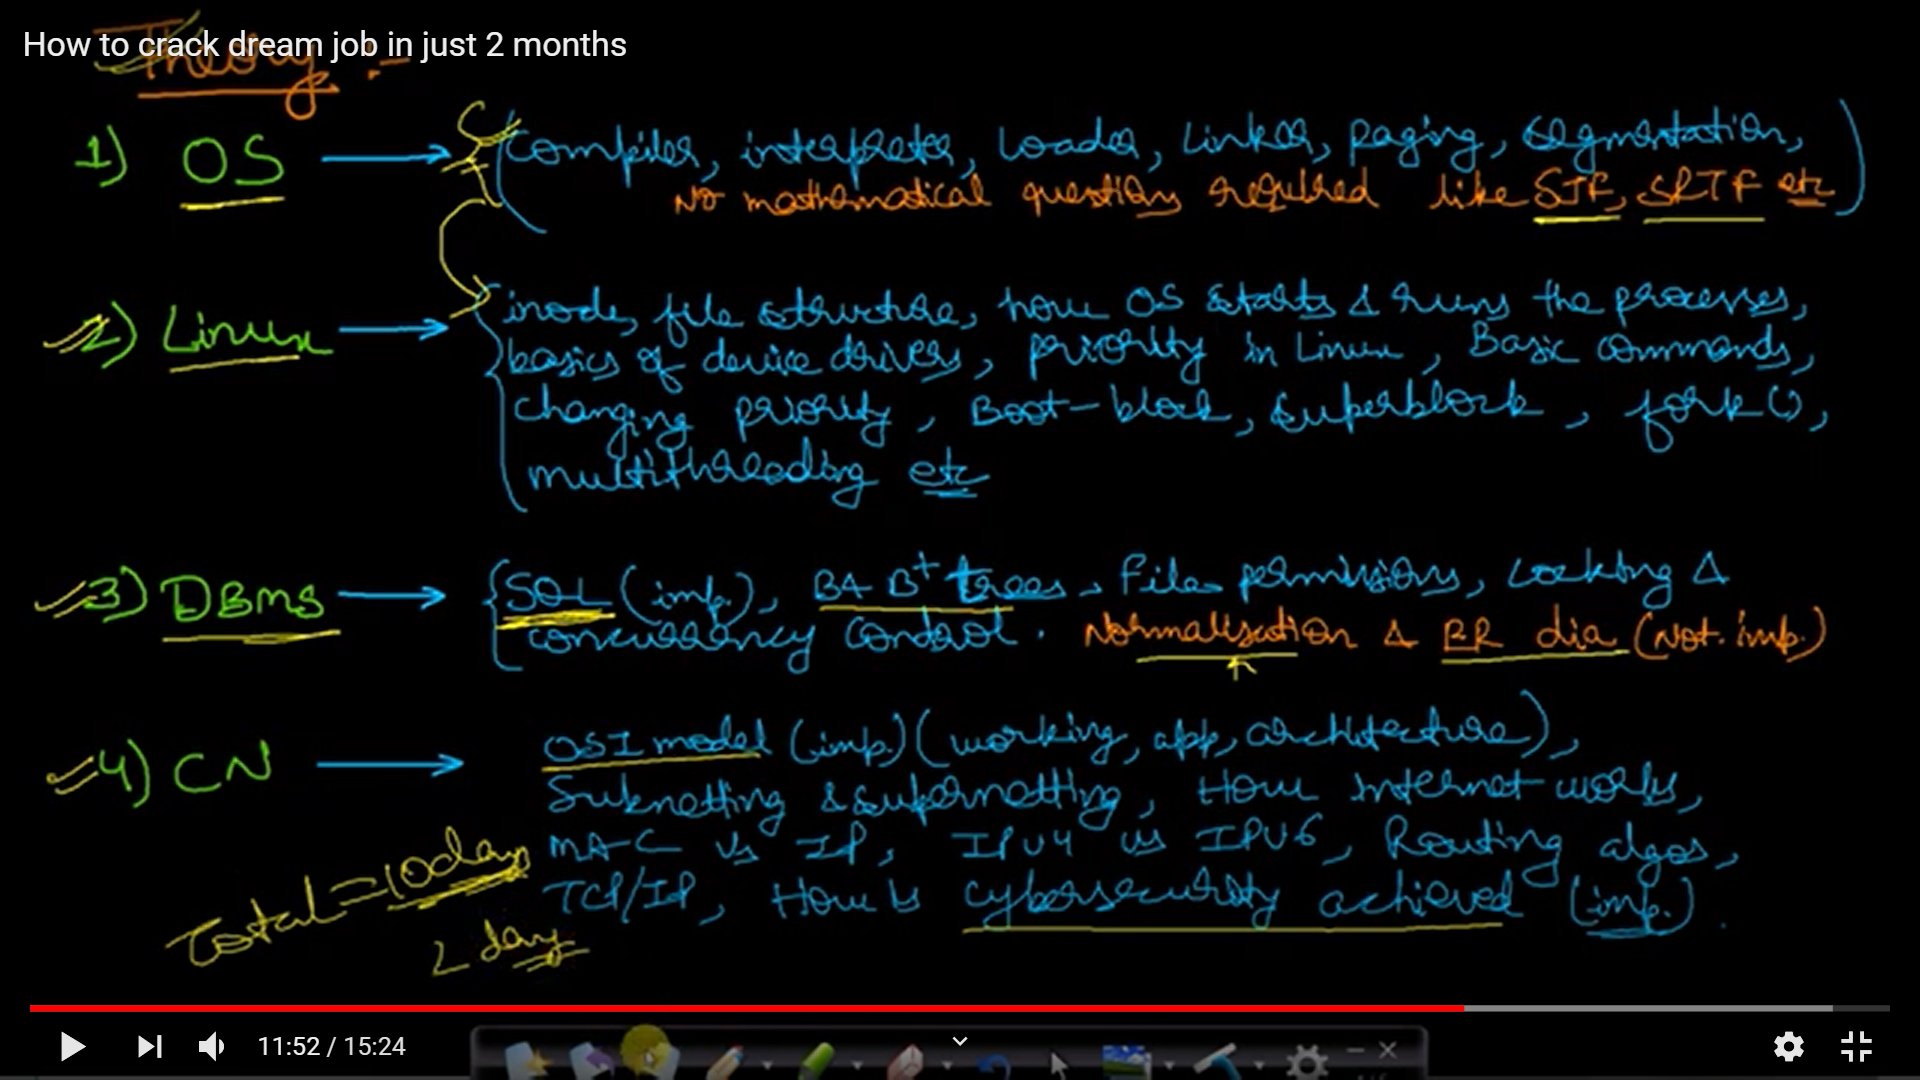 How to crack dream job in just 2 months
Theory :-
1) OS → (compiler, interpreter, Loader, Linker, Paging, segmentation,
No mathematical questions required like SJF, SRTF etc)
2) Linux → {inode, file structure, how OS starts & runs the processes,
basics of device drivers, priority in Linux, Basic commands,
changing priority, Boot-block, superblock, fork(),
multithreading etc
3) DBMS → {SQL (imp.), B & B+ trees, Files permissions, Locking &
concurrency control. Normalisation & ER dia (Not. imp.)
4) CN → OSI model (imp.) (working, app, architecture),
Subnetting & supernetting, How Internet works,
MAC vs IP, IPV4 vs IPV6, Routing algos,
TCP/IP, How is cybersecurity achieved (imp.).
Total = 10 days
2 days
11:52 / 15:24